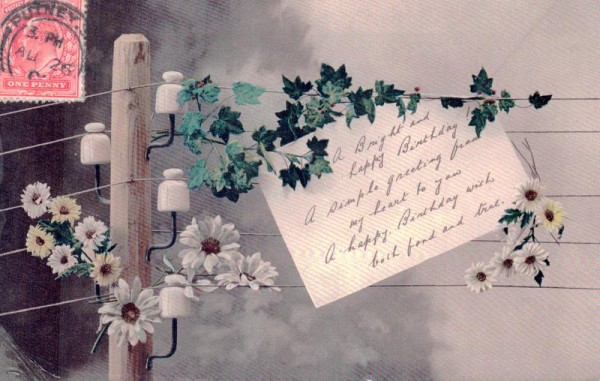 PUTNEY
3. PM
AU 26
ONE PENNY
A Bright and
happy Birthday
A simple greeting from
my heart to you
A happy. Birthday wish
both fond and true.